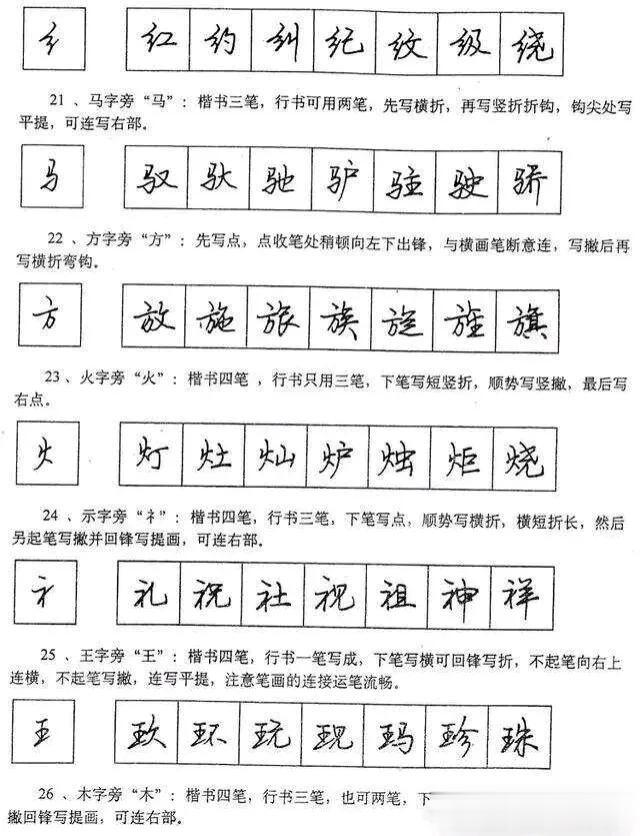 纟 红 约 纠 纪 纹 级 绕
21、马字旁“马”：楷书三笔，行书可用两笔，先写横折，再写竖折折钩，钩尖处写
平提，可连写右部。
马 驭 驮 驰 驴 驻 驶 骄
22、方字旁“方”：先写点，点收笔处稍顿向左下出锋，与横画笔断意连，写撇后再
写横折弯钩。
方 放 施 旅 族 旋 旌 旗
23、火字旁“火”：楷书四笔，行书只用三笔，下笔写短竖折，顺势写竖撇，最后写
右点。
火 灯 灶 灿 炉 烛 炬 烧
24、示字旁“礻”：楷书四笔，行书三笔，下笔写点，顺势写横折，横短折长，然后
另起笔写撇并回锋写提画，可连右部。
礻 礼 祝 社 视 祖 神 祥
25、王字旁“王”：楷书四笔，行书一笔写成，下笔写横可回锋写折，不起笔向右上
连横，不起笔写撇，连写平提，注意笔画的连接运笔流畅。
王 玖 环 玩 现 玛 珍 珠
26、木字旁“木”：楷书四笔，行书三笔，也可两笔，下
撇回锋写提画，可连右部。